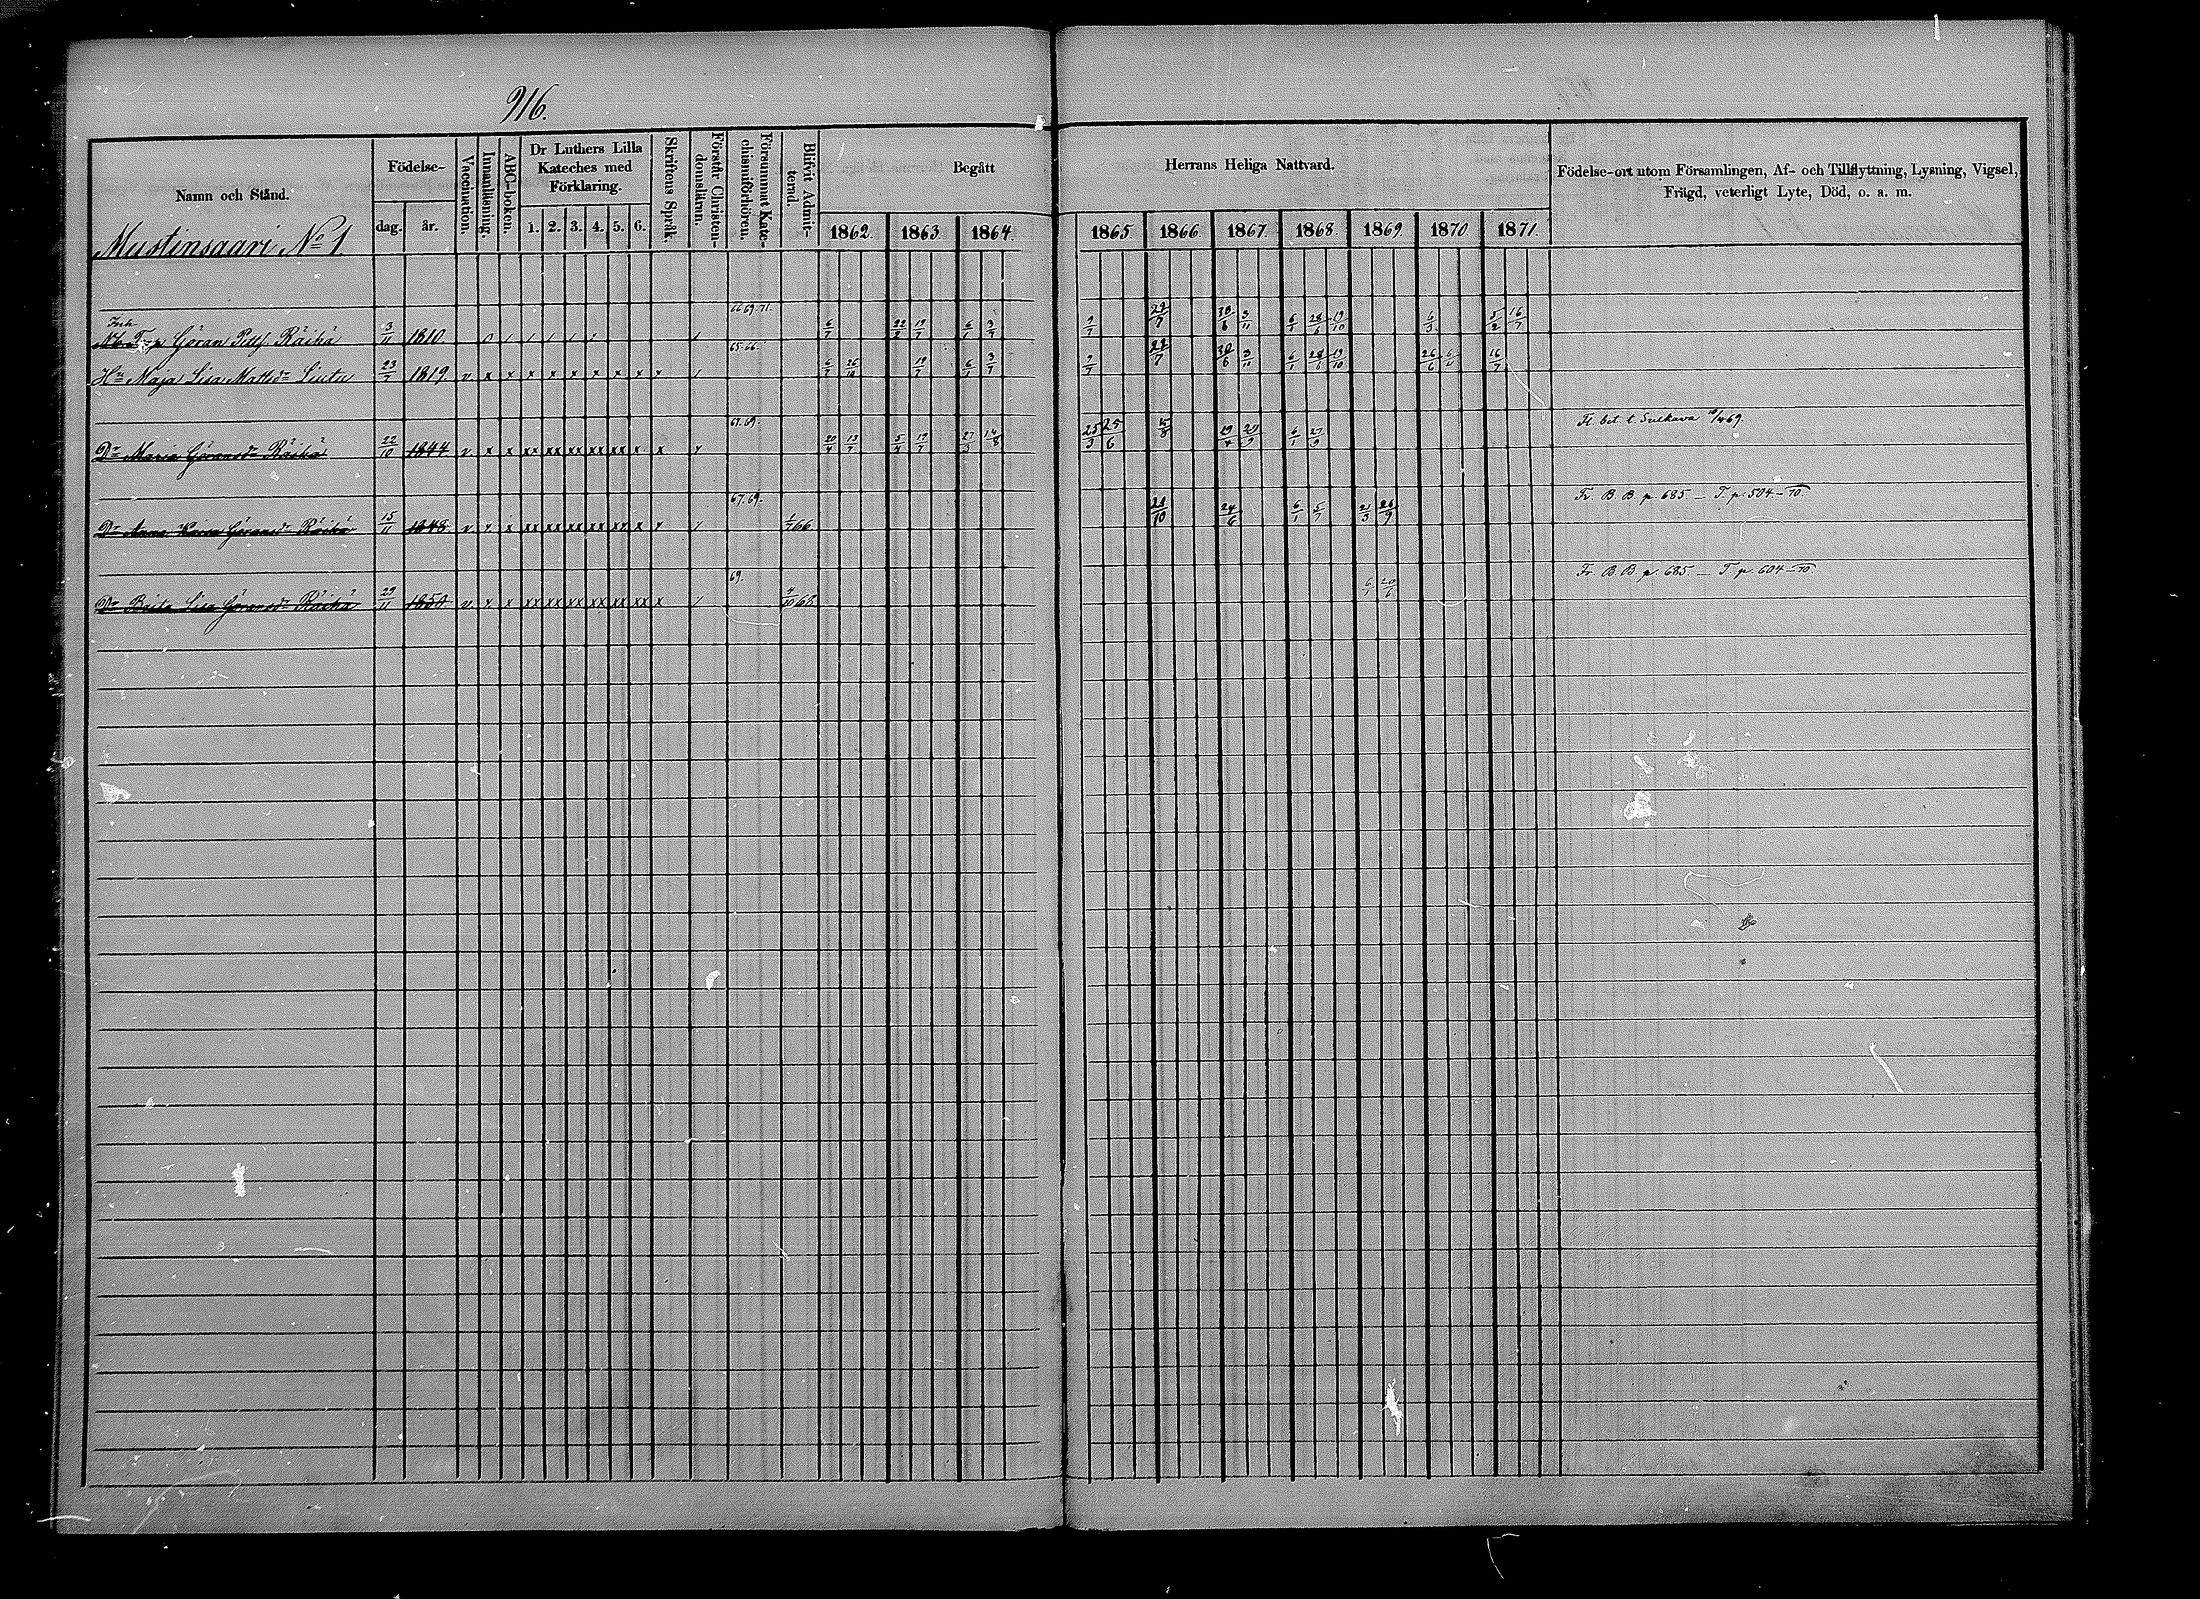 916.
Namn och Stånd.
Födelse-
dag. år.
Vaccination.
Innanläsning.
ABC-boken.
Dr Luthers Lilla
Kateches med
Förklaring.
1. 2. 3. 4. 5. 6.
Skriftens Språk.
Förstår Christen-
domslären.
Försummat Kate-
chismiförhören.
Blifvit Admit-
terad.
Begått
Herrans Heliga Nattvard.
1862. 1863. 1864.
1865 1866. 1867. 1868. 1869. 1870. 1871.
Födelse-ort utom Församlingen, Af- och Tillflyttning, Lysning, Vigsel,
Frägd, veterligt Lyte, Död, o. a. m.
Mustinsaari No 1.
Inh.
Göran Räihä 3/11 1810 66 69. 71. 6/7 22/2 19/7 6/1 3/7 9/7 22/7 30/6 3/11 6/1 28/6 19/10 6/3 5/2 16/7
Hu Maja Lisa Mattsdr 23/7 1819 v. x x x x x x x x x 65. 66. 6/7 26/10 19/7 6/1 3/7 9/7 22/7 30/6 3/11 6/1 28/6 19/10 26/6 16/7
Dr Maria Göransdr Räihä 22/10 1844 v. x x xx xx xx xx xx x x 67. 69. 5/4 19/7 27/3 14/8 25/3 25/6 6/1 Fl. bet. t. Sulkava 69.
Dr Anna Kaisa Göransdr Räihä 15/11 1848 v x x xx xx xx xx xx x x 67. 69. 1/7 66 24/6 6/1 5/7 21/3 26/9 Fr. B. B. p. 685 — T. p. 504 — 70.
Dr Brita Lisa Göransdr Räihä 29/11 1850 v. x x xx xx xx xx xx xx x 69. 4/10 68 6/1 20/6 Fr. B. B. p. 685 — T. p. 604 — 70